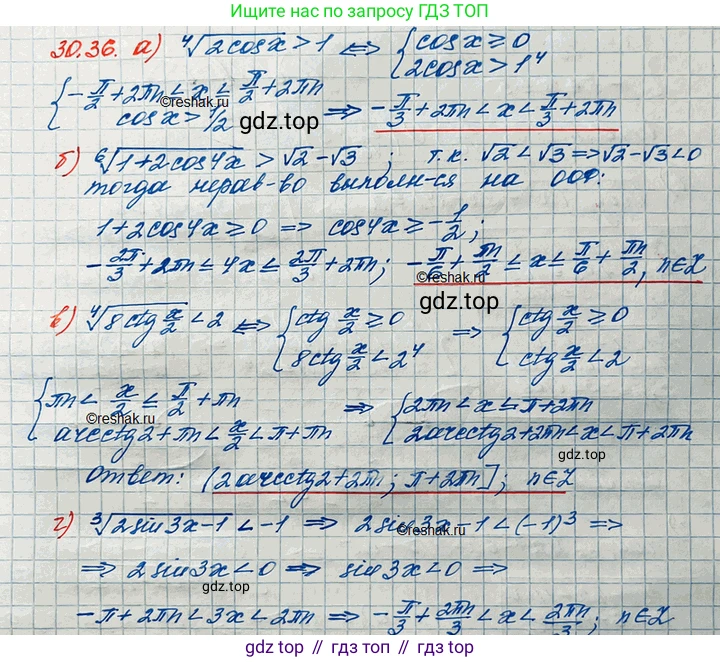 Ищите нас по запросу ГДЗ ТОП
30.36. а) ⁴√(2cosx) > 1 <=> { cosx ≥ 0
2cosx > 1⁴
{ -π/2 + 2πn ≤ x ≤ π/2 + 2πn
cosx > 1/2 => -π/3 + 2πn < x < π/3 + 2πn
©reshak.ru
gdz.top
б) ⁶√(1+2cos4x) > √2 - √3 ; т.к. √2 < √3 => √2 - √3 < 0
тогда нерав-во выполн-ся на ООФ:
1 + 2cos4x ≥ 0 => cos4x ≥ -1/2 ;
-2π/3 + 2πn ≤ 4x ≤ 2π/3 + 2πn ; -π/6 + πn/2 ≤ x ≤ π/6 + πn/2, n∈Z
©reshak.ru
gdz.top
в) ⁴√(8ctg x/2) < 2 <=> { ctg x/2 ≥ 0 => { ctg x/2 ≥ 0
8ctg x/2 < 2⁴ ctg x/2 < 2
{ πn < x/2 ≤ π/2 + πn => { 2πn < x ≤ π + 2πn
©reshak.ru
arcctg2 + πn < x/2 < π + πn 2arcctg2 + 2πn < x < π + 2πn
gdz.top
Ответ: (2arcctg2 + 2πn ; π + 2πn] ; n∈Z
©reshak.ru
г) ³√(2sin3x-1) < -1 => 2sin3x - 1 < (-1)³ =>
=> 2sin3x < 0 => sin3x < 0 =>
gdz.top
-π + 2πn < 3x < 2πn => -π/3 + 2πn/3 < x < 2πn/3 ; n∈Z
gdz.top // гдз.топ // gdz.top